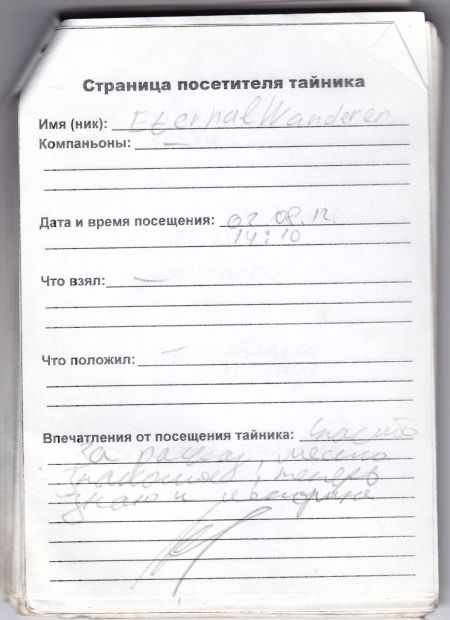 Страница посетителя тайника
Имя (ник): EternalWanderer
Компаньоны: —
Дата и время посещения: 02.08.12.
14:10
Что взял: —
Что положил: —
Впечатления от посещения тайника: Спасибо
За рассказ, место
знакомое, теперь
знаю и историю